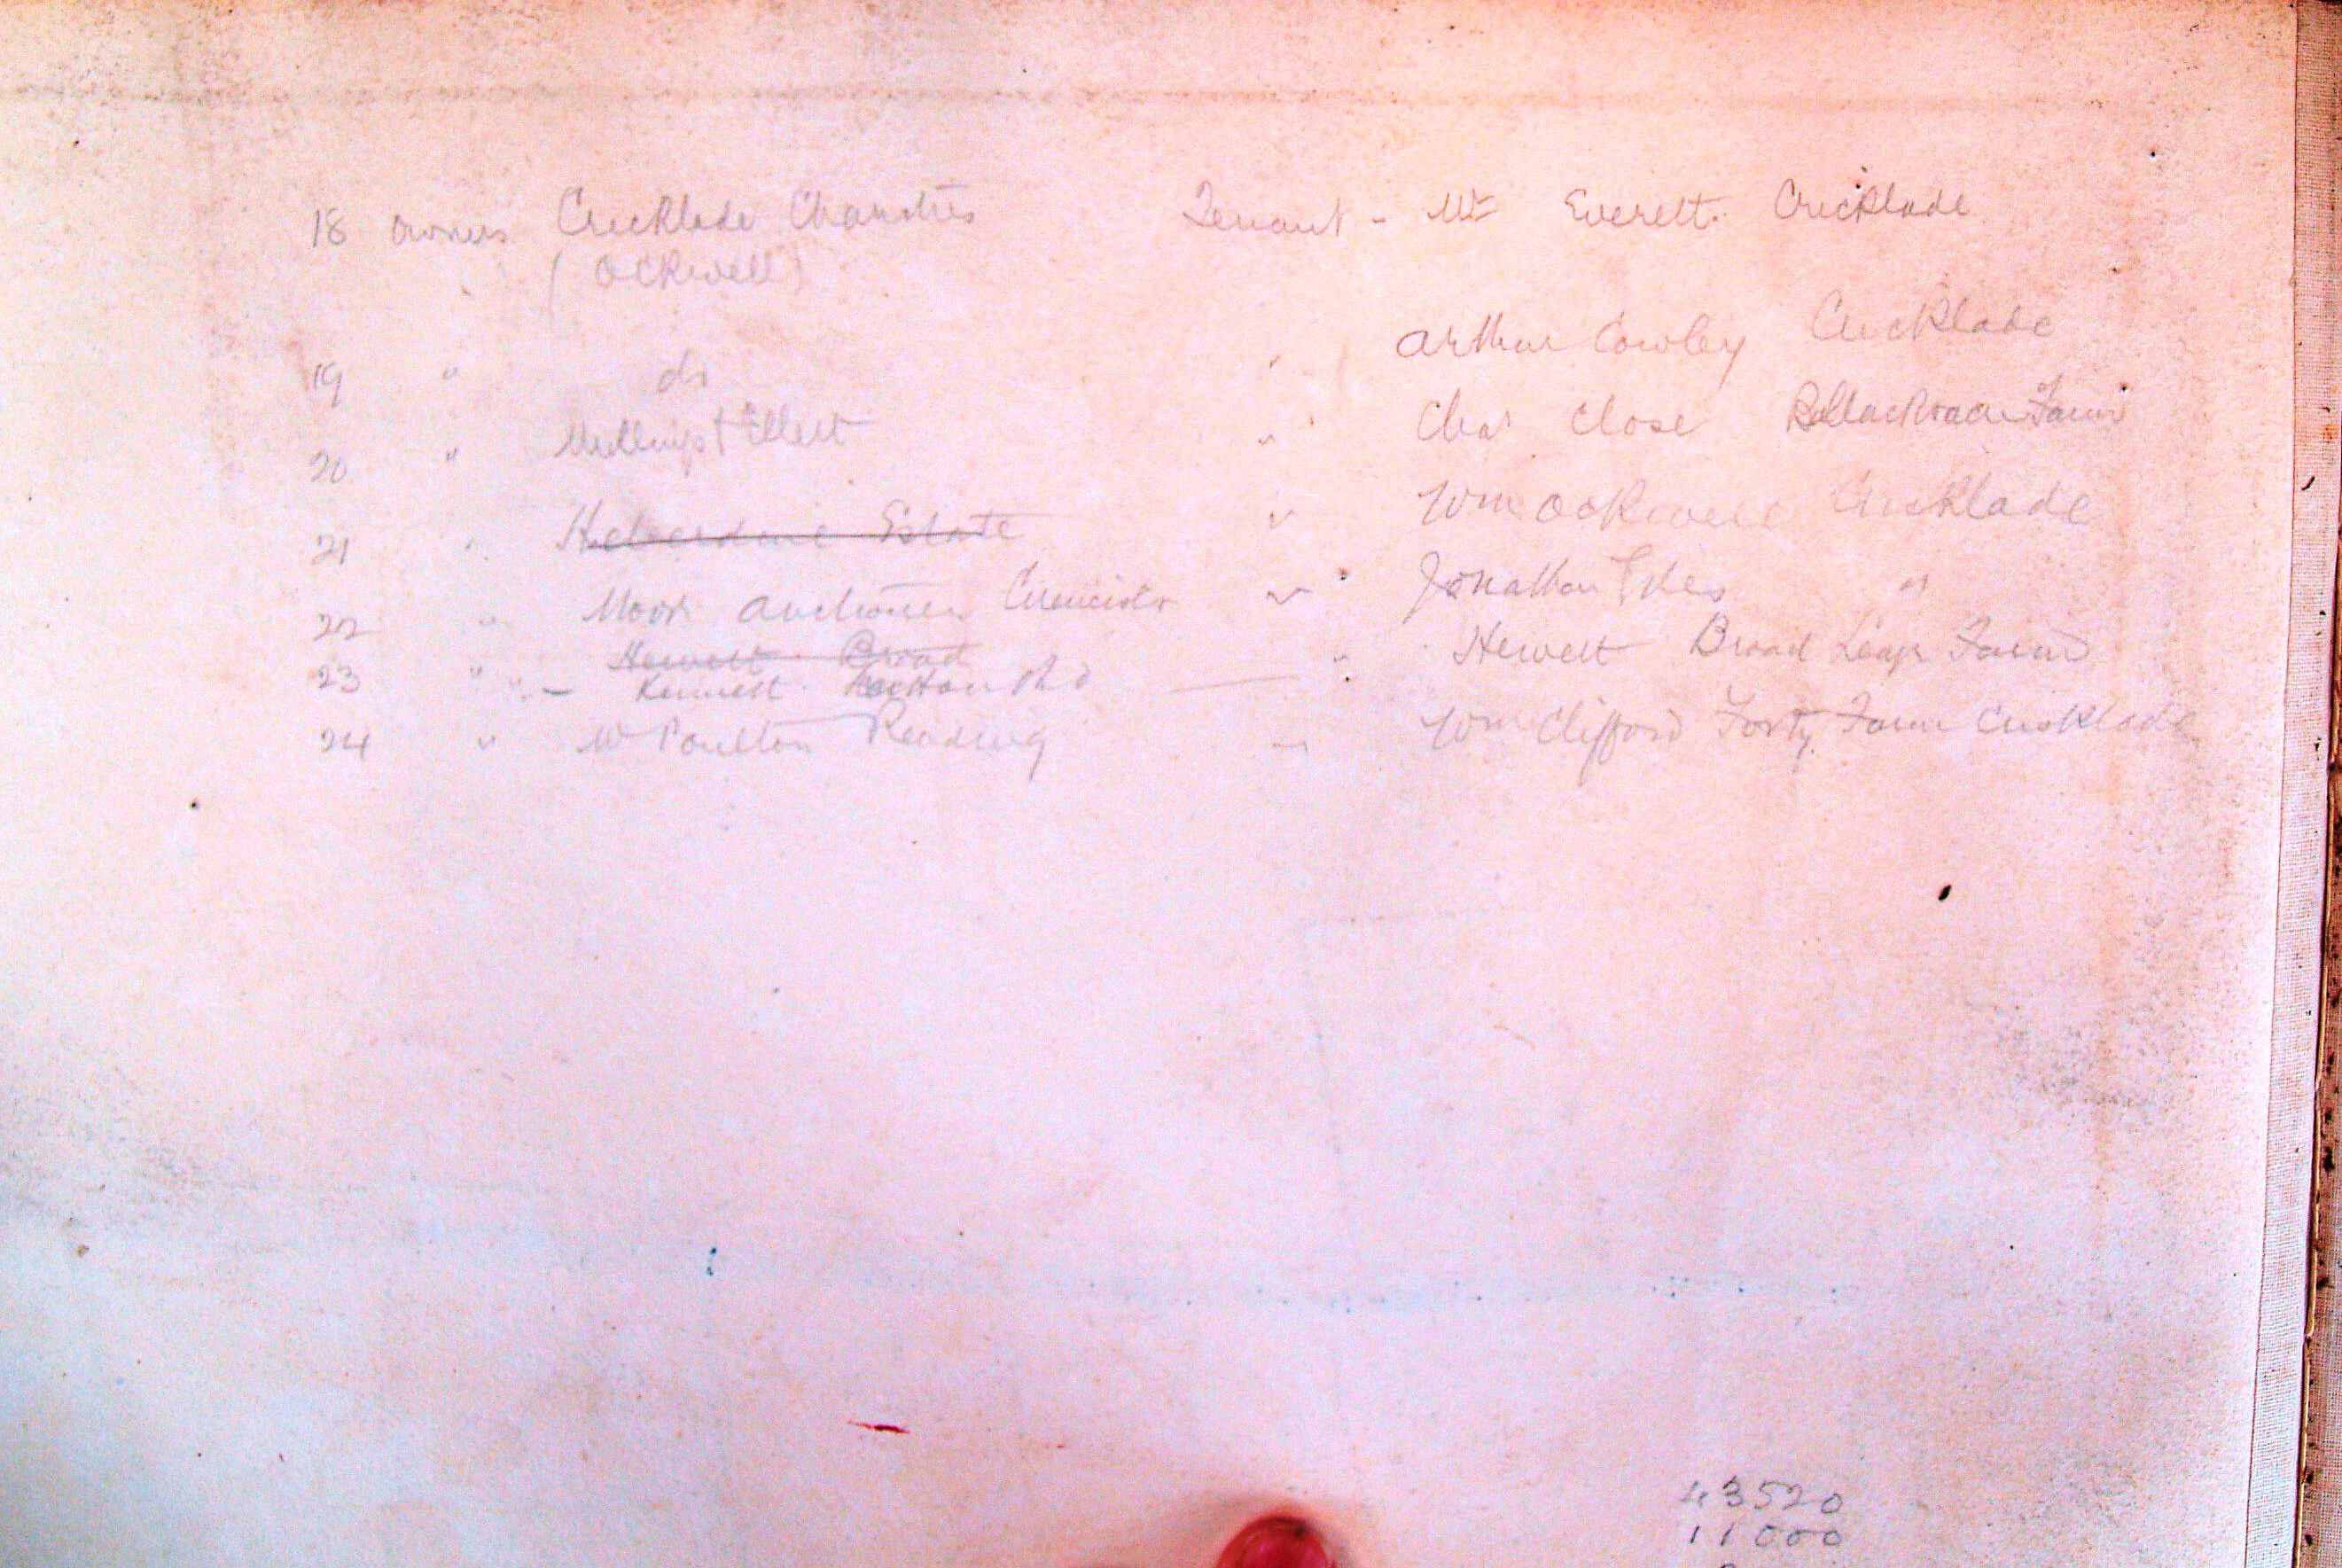 18 owners Cricklade Charities Tenant - Mr Everett. Cricklade
(Ockwell)
19 " do " Arthur Cowley Cricklade
20 " Mullings & Ellett " Chas Close Farm
21 " Estate " Wm Ockwell Cricklade
22 " Moor " Jonathan "
23 " " - Hewett Broad " Hewett Broad Leaze Farm
Kennett Rd
24 " Mr Poulton Reading " Wm Clifford Forty Farm Cricklade
43520
11000